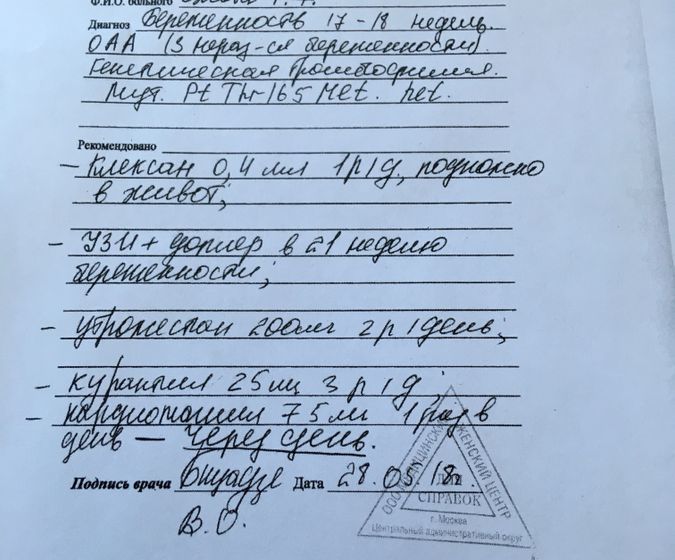 Ф.И.О. больного
Диагноз Беременность 17-18 недель.
ОАА (3 нераз-ся беременности).
Генетическая тромбофилия.
Мут. Pt Thr165Met. het.
Рекомендовано
- Клексан 0,4 мл 1р/д, подкожно
в живот;
- УЗИ + доплер в 21 неделю
беременности;
- утрожестан 200мг 2р/день;
- курантил 25мг 3р/д;
- кардиомагнил 75мг 1 раз в
день - через день.
Подпись врача Дата 28.05.18г.
В.О.
ООО МЕДИЦИНСКИЙ ЖЕНСКИЙ ЦЕНТР
ДЛЯ
СПРАВОК
г. Москва
Центральный административный округ